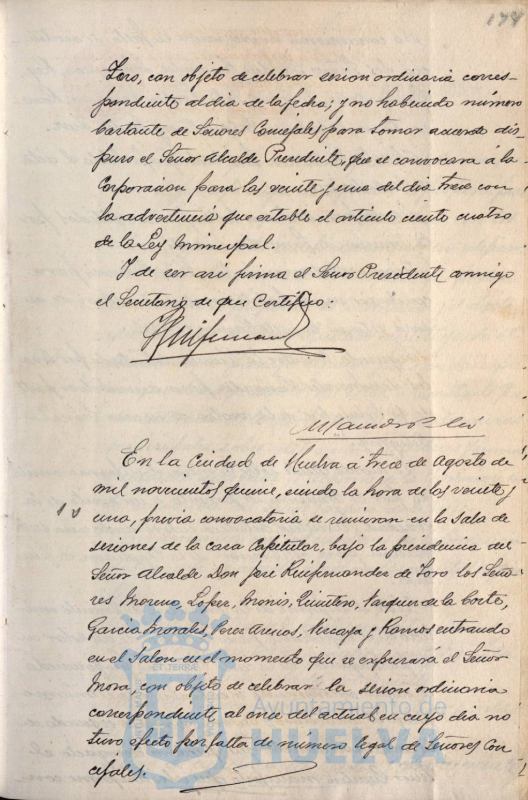 174
Toro, con objeto de celebrar sesion ordinaria corres-
pondiente al dia de la fecha; y no habiendo número
bastante de Señores Concejales para tomar acuerdo dis-
puso el Señor Alcalde Presidente, que se convocara á la
Corporacion para las veinte y una del dia trece con
la advertencia que establece el articulo ciento cuatro
de la Ley Municipal.
Y de ser asi firma el Señor Presidente conmigo
el Secretario de que Certifico:
En la Ciudad de Huelva á trece de Agosto de
mil novecientos quince, siendo la hora de las veinte y
una, previa convocatoria se reunieron en la Sala de
sesiones de la casa Capitular, bajo la presidencia del
Señor Alcalde Don José Ruifernandez de Toro los Seño-
res Moreno, Lopez, Monis, Quintero, Vazquez de la Corte,
Garcia Morales, Perez Arenos, Vizcaya y Ramos entrando
en el Salon en el momento que se expresará el Señor
Mora, con objeto de celebrar la sesion ordinaria
correspondiente al once del actual en cuyo dia no
tuvo efecto por falta de numero legal de Señores Con-
cejales.
Ayuntamiento de
HUELVA